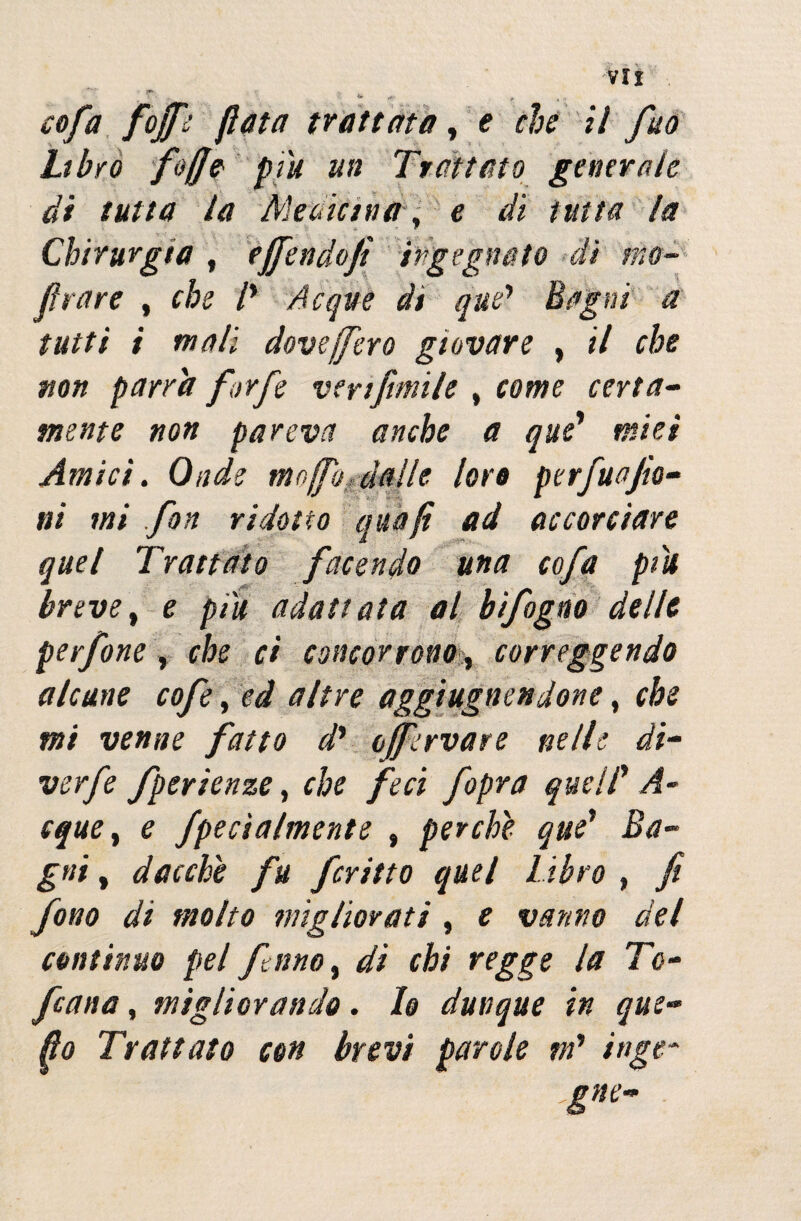 VII
coſa foſſe ſtata trattata, e che il ſuo
Libro foſſe più un Trattato generale
di tutta la Medicina, e di tutta la
Chirurgia, eſſendoſi ingegnato di mo-
ſtrare, che l' Acque di que' Bagni a
tutti i mali doveſſero giovare, il che
non parrà forſe veriſimile, come certa-
mente non pareva anche a que' miei
Amici. Onde moſſo dalle loro perſuaſio-
ni mi ſon ridotto quaſi ad accorciare
quel Trattato facendo una coſa più
breve, e più adattata al biſogno delle
perſone, che ci concorrono, correggendo
alcune coſe, ed altre aggiugnendone, che
mi venne fatto d' oſſervare nelle di-
verſe ſperienze, che feci ſopra quell' A-
cque, e ſpecialmente, perchè que' Ba-
gni, dacchè fu ſcritto quel Libro, ſi
ſono di molto migliorati, e vanno del
continuo pel ſenno, di chi regge la To-
ſcana, migliorando. Io dunque in que-
ſto Trattato con brevi parole m' inge-
gne-